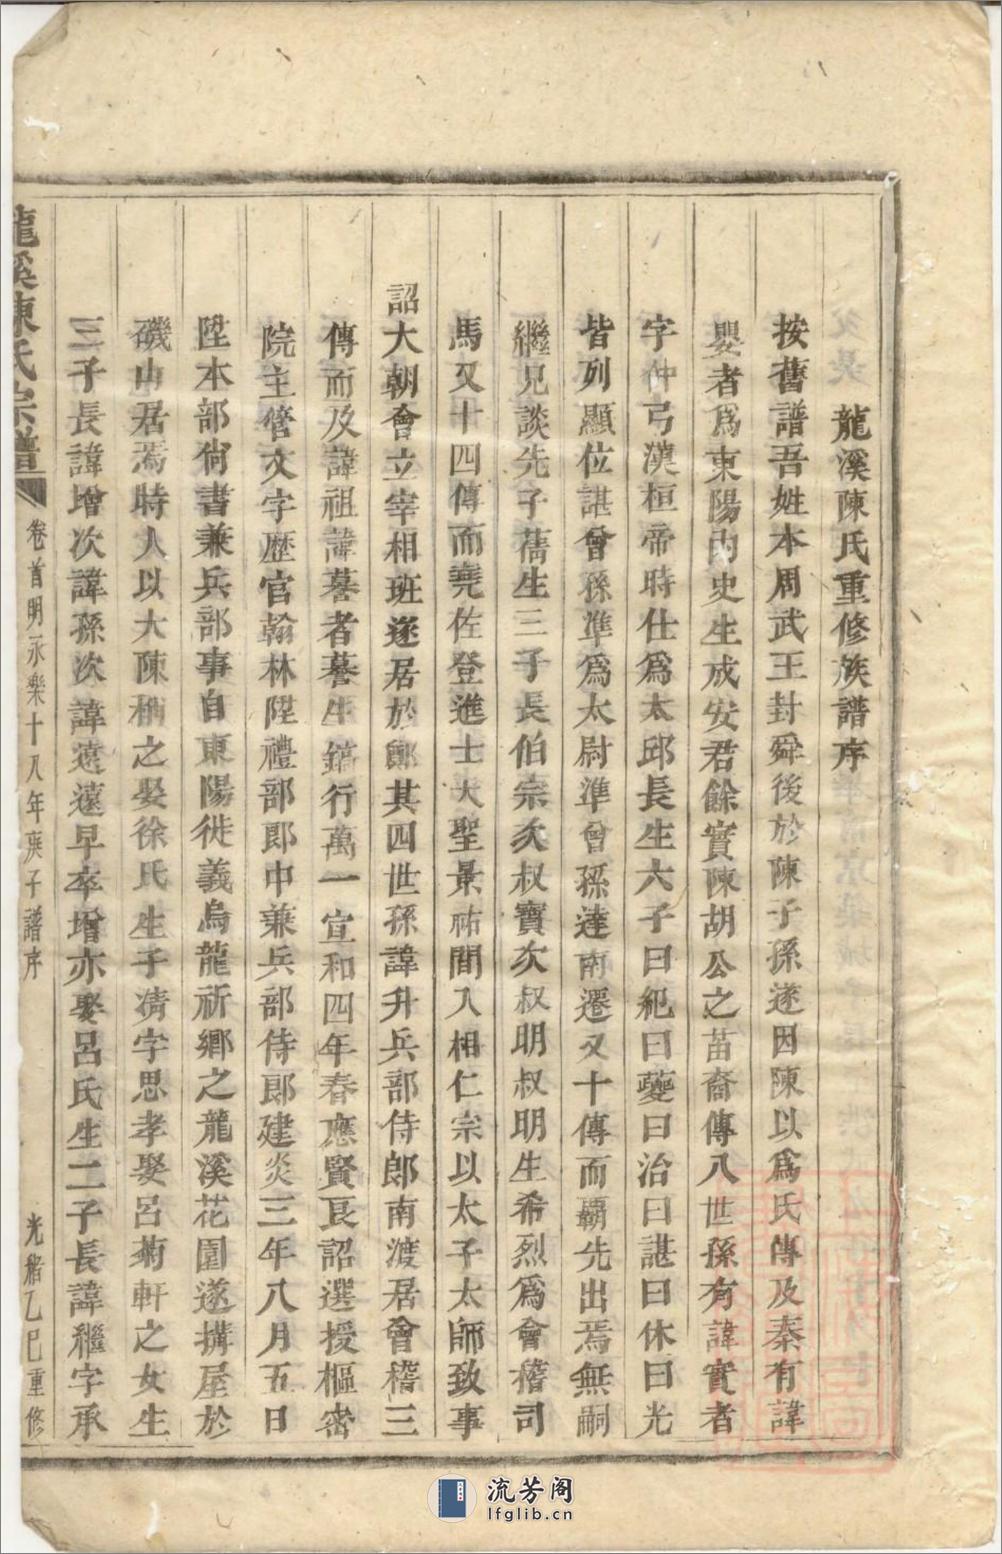 龍溪陳氏重修族譜序
按舊譜吾姓本周武王封舜後於陳子孫遂因陳以爲氏傳及秦有諱
嬰者爲東陽內史生成安君餘實陳胡公之苗裔傳八世孫有諱實者
字仲弓漢桓帝時仕爲太邱長生六子曰紀曰夔曰治曰諶曰休曰光
皆列顯位諶曾孫準爲太尉準曾孫達南遷又十傳而霸先出焉無嗣
繼兄談先子蒨生三子長伯宗次叔寶次叔明叔明生希烈爲會稽司
馬又十四傳而堯佐登進士大聖景祐間入相仁宗以太子太師致事
詔大朝會立宰相班遂居於鄭其四世孫諱升兵部侍郎南渡居會稽三
傳而及諱祖諱蟇者蟇生鎬行萬一宣和四年春應賢良詔選授樞密
院主管文字歷官翰林陞禮部郎中兼兵部侍郎建炎三年八月五日
陞本部尙書兼兵部事自東陽徙義烏龍祈鄉之龍溪花園遂搆屋於
磯山居焉時人以大陳稱之娶徐氏生子清字思孝娶呂菊軒之女生
三子長諱增次諱孫次諱遠遠早卒增亦娶呂氏生二子長諱繼字承
龍溪陳氏宗譜
卷首明永樂十八年庚子譜序
光緖乙巳重修
流芳阁
lfglib.cn